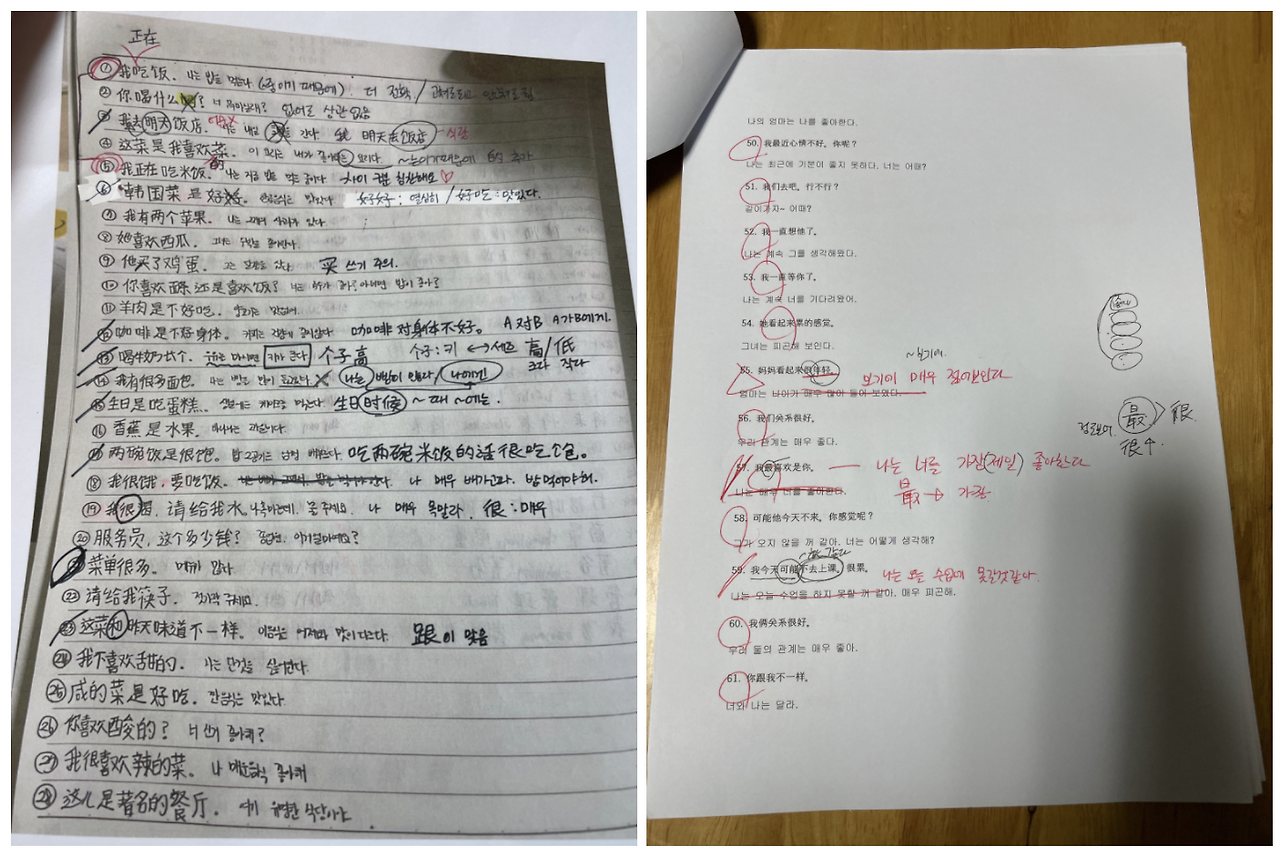 正在
① 我吃饭. 나는 밥을 먹는다 (중이기 때문에) 더 정확 /
② 你喝什么? 너 뭐마실래? 없어도 상관 없음
我去明天饭店. 나는 내일 간다 明天去饭店 - 식당
④ 这菜是我喜欢菜. 이 요리는 내가 좋아하는 요리다. ~는이기때문에 的 추가
⑤ 我正在吃米饭. 나는 지금 밥을 먹는 중이다 차이 구분 칭찬해요♡
⑥ 韩国菜是好 한국음식은 맛있다 好好 : 열심히 / 好吃 : 맛있다.
⑦ 我有两个苹果. 나는 2개의 사과가 있다.
⑧ 她喜欢西瓜. 그녀는 수박을 좋아한다.
⑨ 他买了鸡蛋. 그는 달걀을 샀다. 买 쓰기 주의.
⑩ 你喜欢面条还是喜欢饭? 너는 국수가 좋아? 아니면 밥이 좋아?
⑪ 羊肉是不好吃. 양고기는 맛없어.
⑫ 咖啡是不好身体. 커피는 건강에 좋지않다 咖啡对身体不好。 A 对 B A가B에게.
⑬ 喝牛奶大个. 우유를 마시면 키가 큰다 个子高 个子:키 ↔ 高/低 크다 작다
⑭ 我有很多面包. 나는 빵을 많이 나는 빵이 있다 / 나에겐
⑮ 生日是吃蛋糕. 생일에는 케이크를 먹는다. 生日时候 ~때 ~에는.
⑯ 香蕉是水果. 바나나는 과일이다.
⑰ 两碗饭是很饱. 밥 2공기는 배부르다 吃两碗米饭的话很吃饱。
⑱ 我很饿, 要吃饭. 나 매우 배가고파. 밥 먹어야해.
⑲ 我很渴, 请给我水. 나 목마른데. 물 주세요. 나 매우 목말라. 很:매우
⑳ 服务员, 这个多少钱? 종업원, 이거얼마예요?
㉑ 菜单很多. 메뉴 많다
㉒ 请给我筷子. 젓가락 주세요.
㉓ 这菜和昨天味道不一样. 이음식은 어제와 맛이 다르다 跟이 맞음
㉔ 我不喜欢甜的. 나는 단것을 싫어한다.
㉕ 咸的菜是好吃. 짠음식은 맛있다.
㉖ 你喜欢酸的? 너 신거 좋아해?
㉗ 我很喜欢辣的菜. 나 매운음식 좋아해
㉘ 这儿是著名的餐厅. 여기 유명한 식당이야
나의 엄마는 나를 좋아한다.
50. 我最近心情不好。你呢?
나는 최근에 기분이 좋지 못하다. 너는 어때?
51. 我们去吧。行不行?
같이가자~ 어때?
52. 我一直想他了。
나는 계속 그를 생각해왔다.
53. 我一直等你了。
나는 계속 너를 기다려왔어.
54. 她看起来累的感觉。
그녀는 피곤해 보인다.
~보기에.
55. 妈妈看起来很年轻。 보기에 매우 젊어보인다
엄마는 나이가 매우 많이 들어 보였다.
56. 我们关系很好。
우리 관계는 매우 좋다.
最 > 很
很个
57. 我最喜欢是你。 — 나는 너를 가장(제일) 좋아한다
나는 매우 너를 좋아한다.
最 → 가장
58. 可能他今天不来。你感觉呢?
그가 오지 않을 꺼 같아. 너는 어떻게 생각해?
~할것 같다
59. 我今天可能不去上课。很累。 나는 오늘 수업에 못갈것같다.
나는 오늘 수업을 하지 못할 꺼 같아. 매우 피곤해.
60. 我俩关系很好。
우리 둘의 관계는 매우 좋아.
61. 你跟我不一样。
너와 나는 달라.